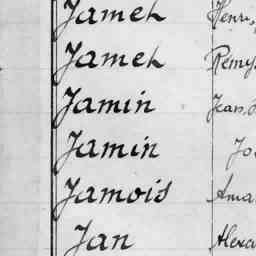 Jamet Henri,
Jamet Rémy
Jamin Jean
Jamin Jo
Jamois Ama
Jan Alexa